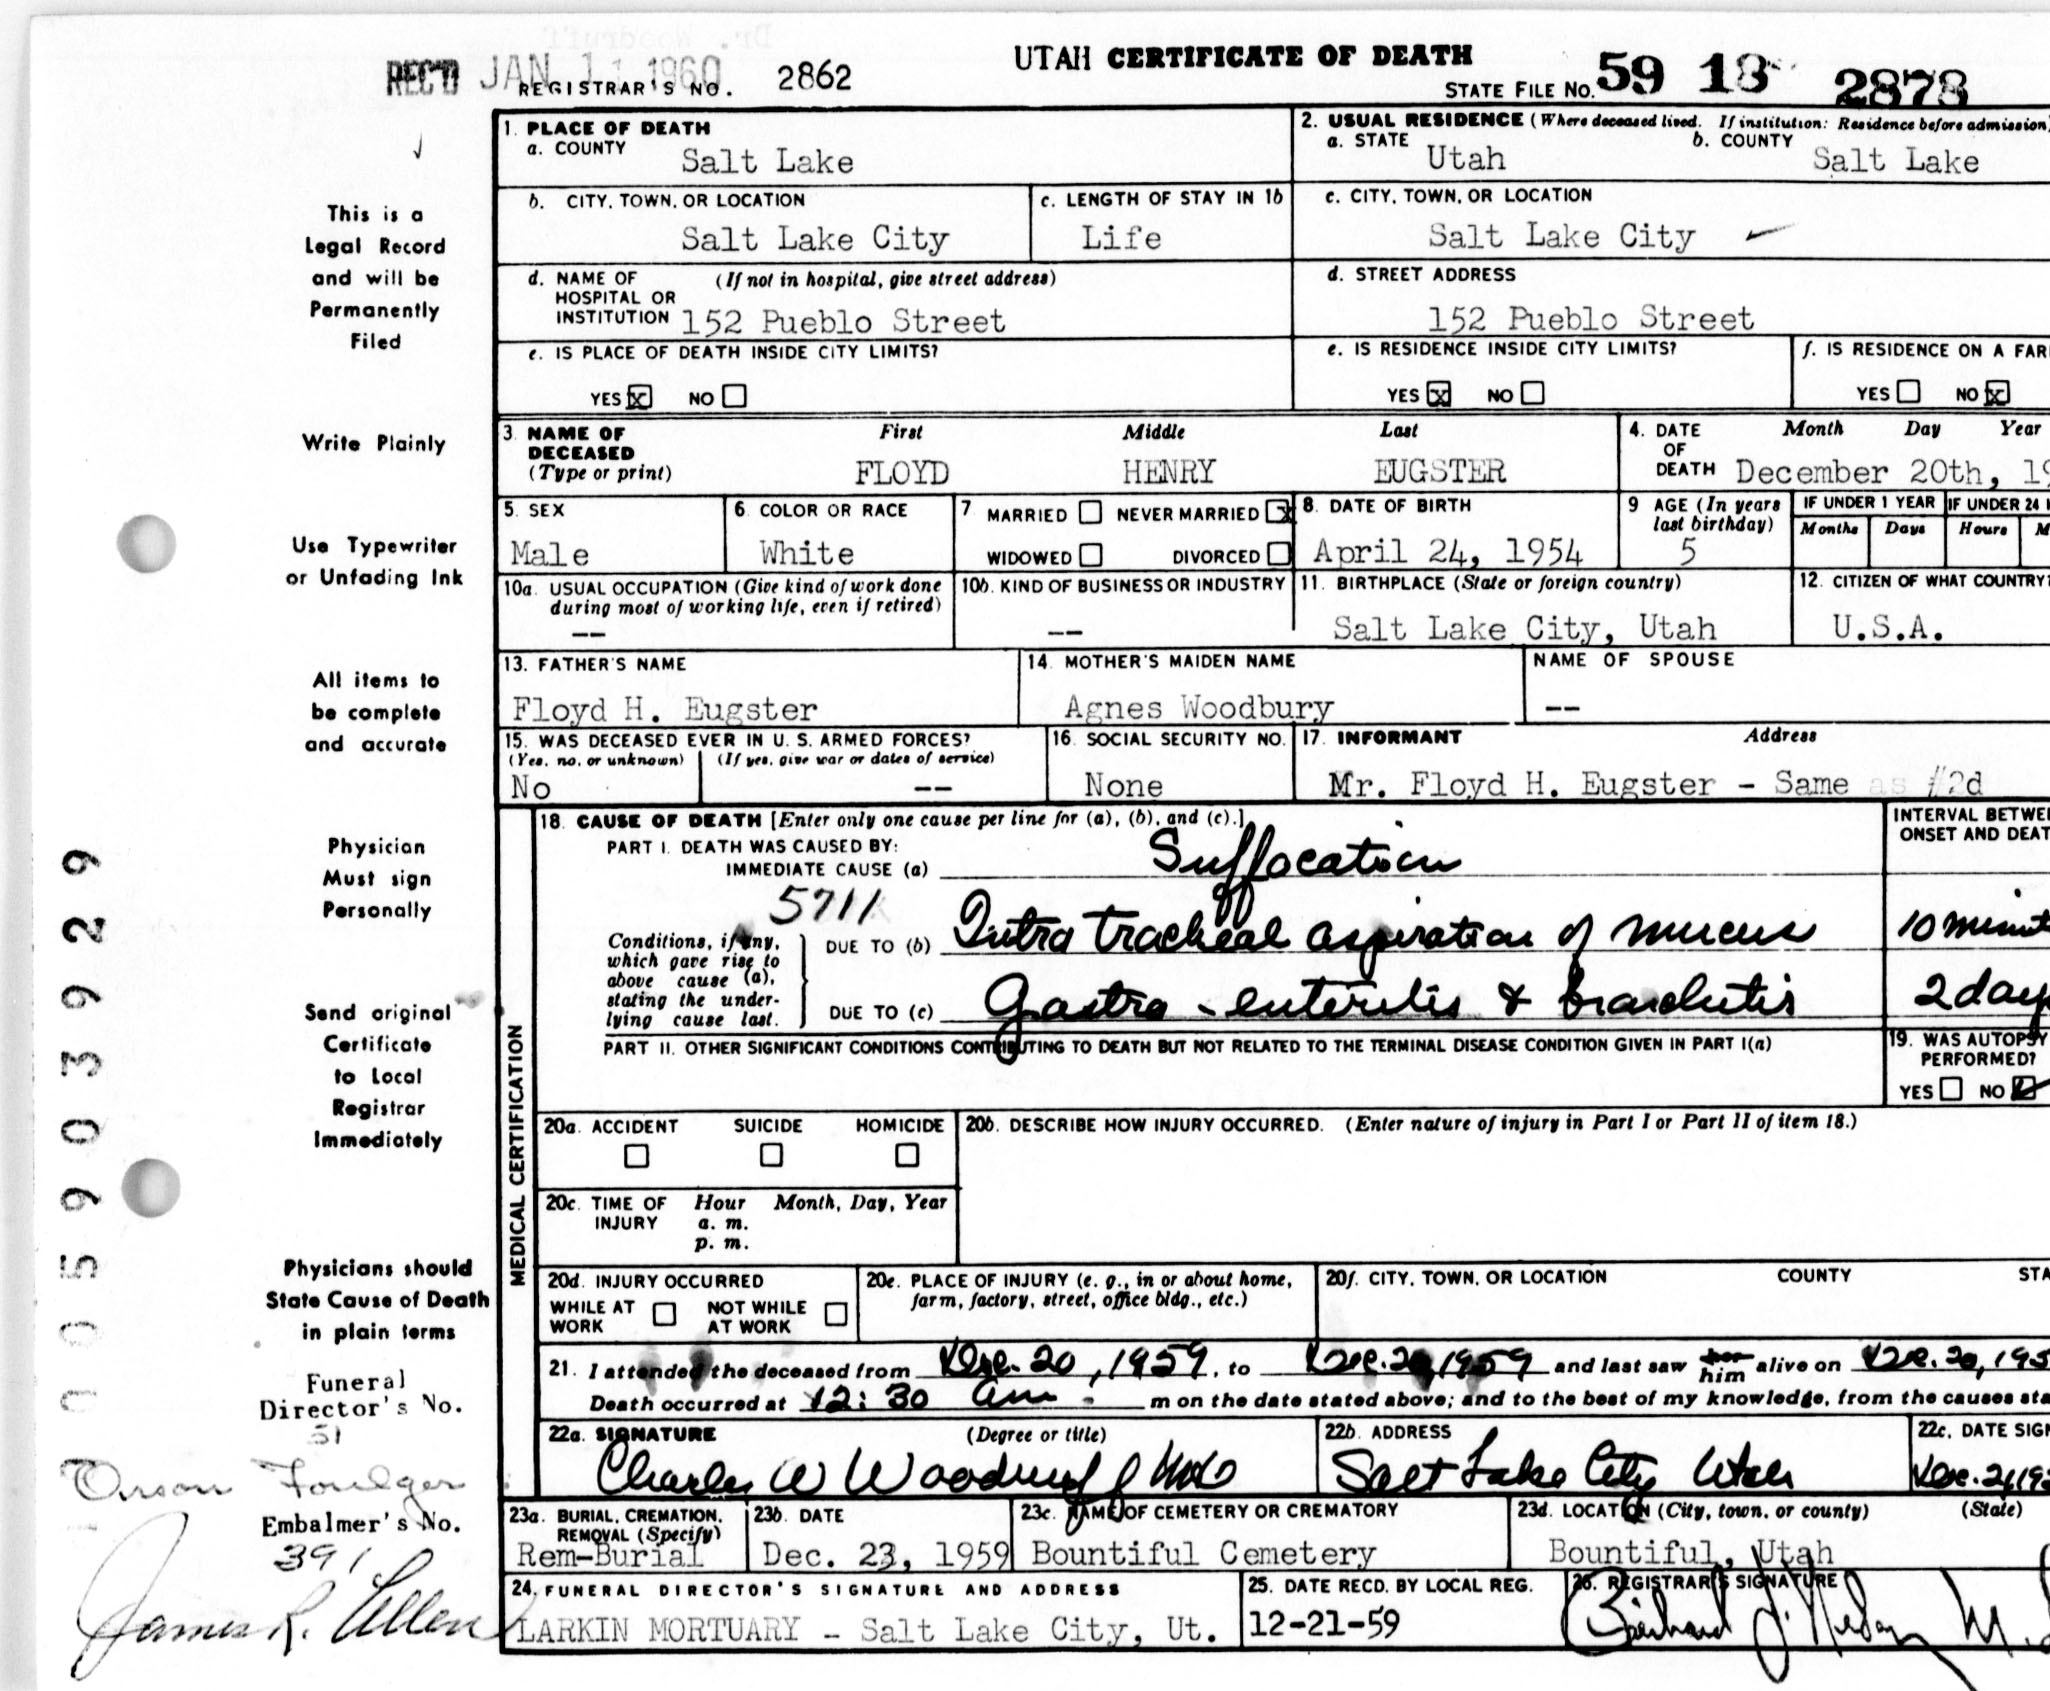 UTAH CERTIFICATE OF DEATH
REC'D JAN 11 1960
REGISTRAR'S NO. 2862
STATE FILE No. 59 18 2878
This is a
Legal Record
and will be
Permanently
Filed
Write Plainly
Use Typewriter
or Unfading Ink
All items to
be complete
and accurate
Physician
Must sign
Personally
Send original
Certificate
to Local
Registrar
Immediately
Physicians should
State Cause of Death
in plain terms
Funeral
Director's No.
51
Orson Foulger
Embalmer's No.
391
James R. Allen
1. PLACE OF DEATH
a. COUNTY Salt Lake
2. USUAL RESIDENCE (Where deceased lived. If institution: Residence before admission)
a. STATE Utah b. COUNTY Salt Lake
b. CITY, TOWN, OR LOCATION
Salt Lake City
c. LENGTH OF STAY IN 1b
Life
c. CITY, TOWN, OR LOCATION
Salt Lake City
d. NAME OF HOSPITAL OR INSTITUTION (If not in hospital, give street address)
152 Pueblo Street
d. STREET ADDRESS
152 Pueblo Street
e. IS PLACE OF DEATH INSIDE CITY LIMITS?
YES x NO
e. IS RESIDENCE INSIDE CITY LIMITS?
YES x NO
f. IS RESIDENCE ON A FAR
YES NO x
3. NAME OF DECEASED (Type or print)
First Middle Last
FLOYD HENRY EUGSTER
4. DATE OF DEATH Month Day Year
December 20th, 19
5. SEX
Male
6. COLOR OR RACE
White
7. MARRIED NEVER MARRIED x
WIDOWED DIVORCED
8. DATE OF BIRTH
April 24, 1954
9 AGE (In years last birthday)
5
IF UNDER 1 YEAR IF UNDER 24 H
Months Days Hours M
10a. USUAL OCCUPATION (Give kind of work done during most of working life, even if retired)
--
10b. KIND OF BUSINESS OR INDUSTRY
--
11. BIRTHPLACE (State or foreign country)
Salt Lake City, Utah
12. CITIZEN OF WHAT COUNTRY?
U.S.A.
13. FATHER'S NAME
Floyd H. Eugster
14. MOTHER'S MAIDEN NAME
Agnes Woodbury
NAME OF SPOUSE
--
15. WAS DECEASED EVER IN U. S. ARMED FORCES?
(Yes, no, or unknown) (If yes, give war or dates of service)
No --
16. SOCIAL SECURITY NO.
None
17. INFORMANT Address
Mr. Floyd H. Eugster - Same as #2d
MEDICAL CERTIFICATION
18. CAUSE OF DEATH [Enter only one cause per line for (a), (b), and (c).]
INTERVAL BETWEE
ONSET AND DEAT
PART I. DEATH WAS CAUSED BY:
IMMEDIATE CAUSE (a) Suffocation
5711
Conditions, if any, which gave rise to above cause (a), stating the underlying cause last.
DUE TO (b) Intra tracheal aspiration of mucus 10 minut
DUE TO (c) Gastro-enteritis & bronchitis 2 days
PART II. OTHER SIGNIFICANT CONDITIONS CONTRIBUTING TO DEATH BUT NOT RELATED TO THE TERMINAL DISEASE CONDITION GIVEN IN PART I(a)
19. WAS AUTOPSY PERFORMED?
YES NO
20a. ACCIDENT SUICIDE HOMICIDE
20b. DESCRIBE HOW INJURY OCCURRED. (Enter nature of injury in Part I or Part II of item 18.)
20c. TIME OF INJURY Hour Month, Day, Year
a. m.
p. m.
20d. INJURY OCCURRED
WHILE AT WORK NOT WHILE AT WORK
20e. PLACE OF INJURY (e. g., in or about home, farm, factory, street, office bldg., etc.)
20f. CITY, TOWN, OR LOCATION COUNTY STA
21. I attended the deceased from Dec. 20, 1959, to Dec. 20, 1959 and last saw her him alive on Dec. 20, 195
Death occurred at 12:30 am m on the date stated above; and to the best of my knowledge, from the causes sta
22a. SIGNATURE (Degree or title)
Charles W Woodruff MD
22b. ADDRESS
Salt Lake City Utah
22c. DATE SIGN
Dec. 21, 195
23a. BURIAL, CREMATION, REMOVAL (Specify)
Rem-Burial
23b. DATE
Dec. 23, 1959
23c. NAME OF CEMETERY OR CREMATORY
Bountiful Cemetery
23d. LOCATION (City, town, or county) (State)
Bountiful, Utah
24. FUNERAL DIRECTOR'S SIGNATURE AND ADDRESS
LARKIN MORTUARY - Salt Lake City, Ut.
25. DATE RECD. BY LOCAL REG.
12-21-59
26. REGISTRAR'S SIGNATURE
005903929